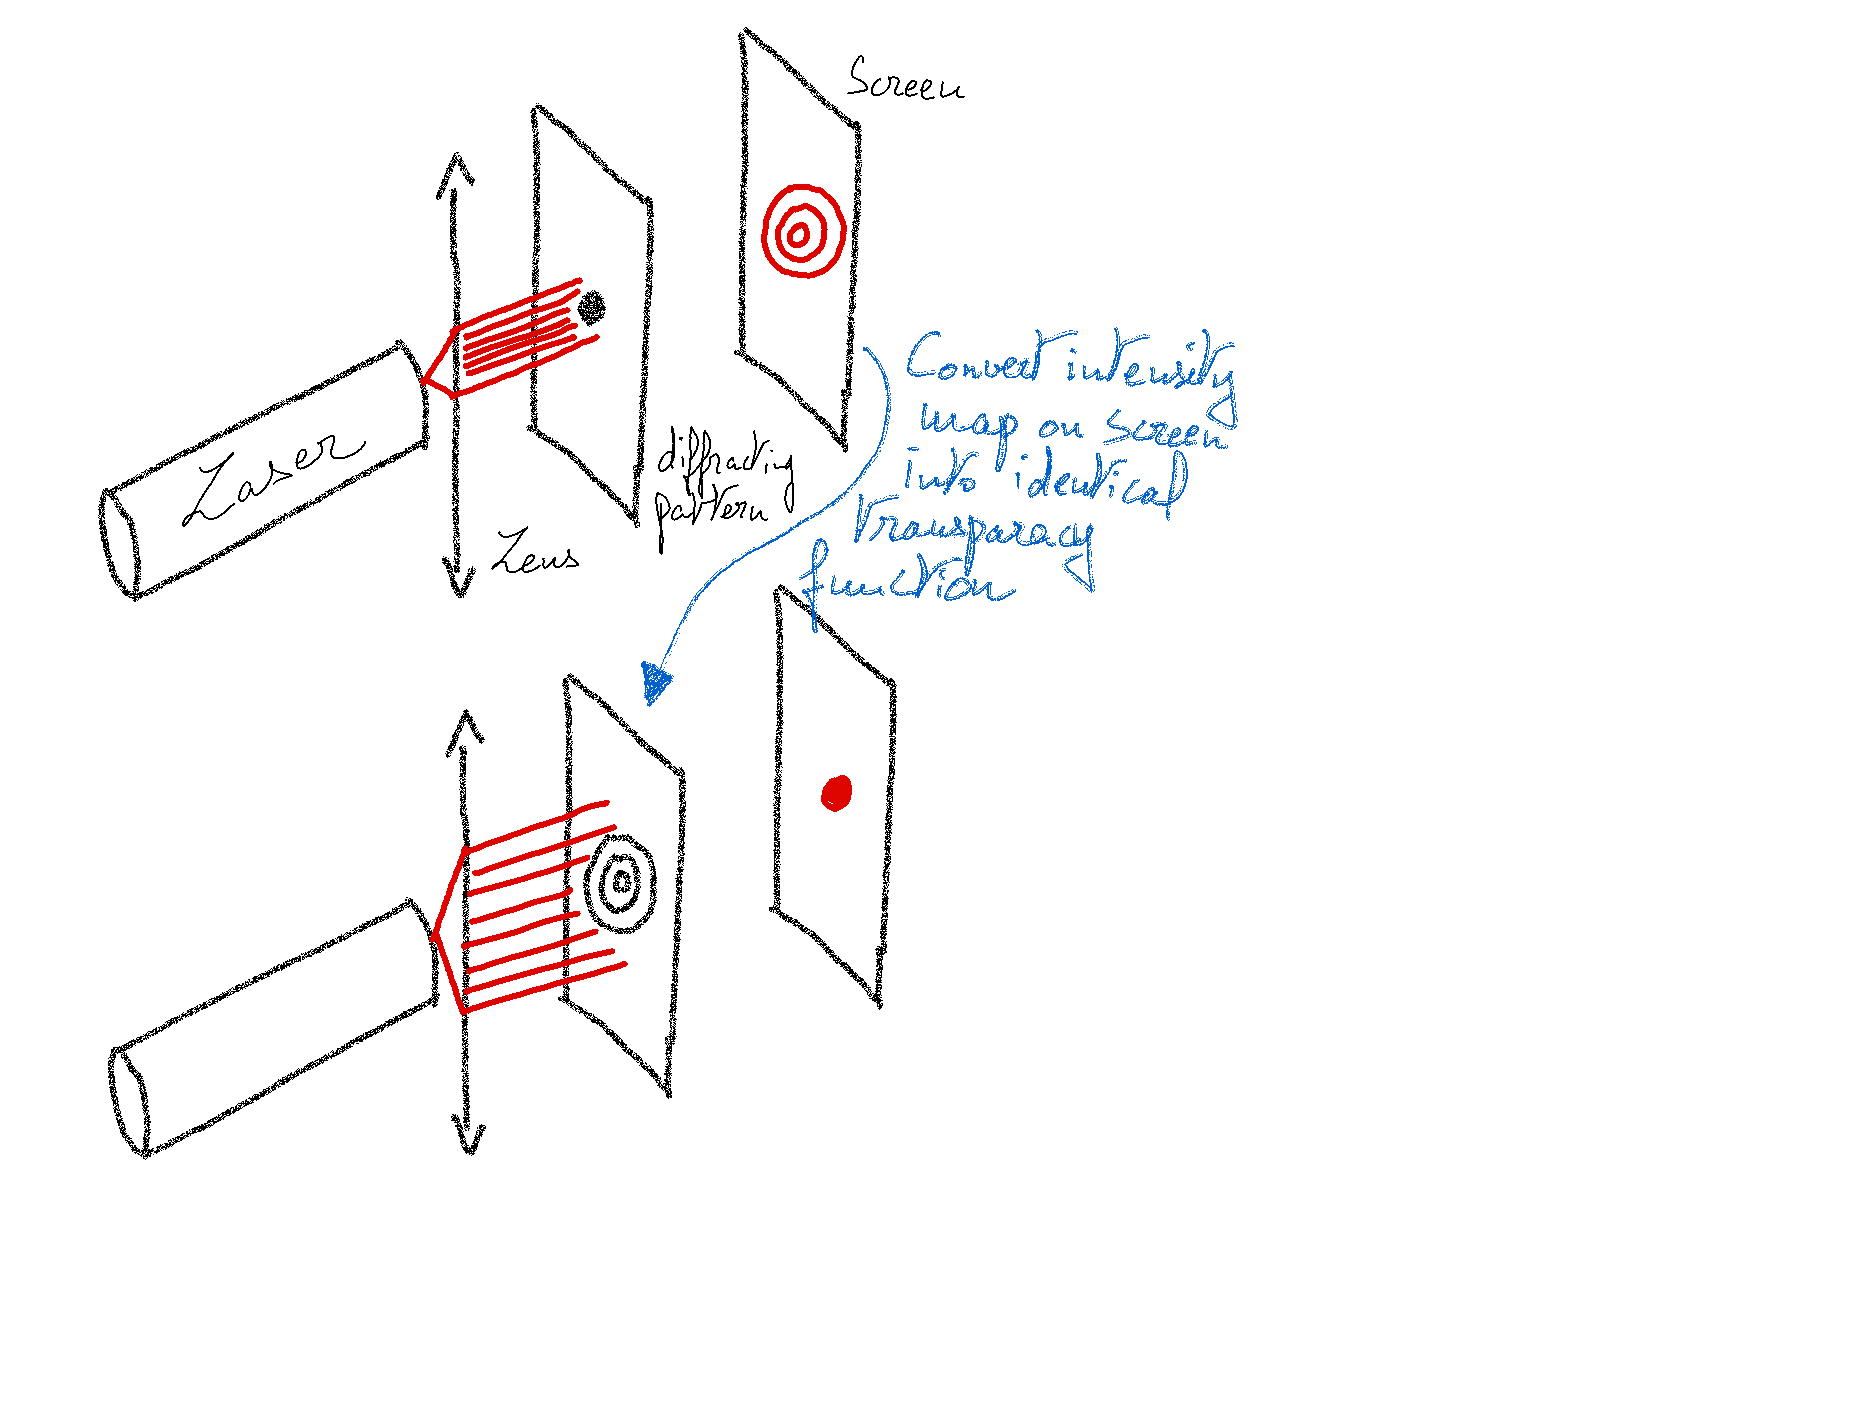 Screen
Laser
Lens
diffracting
pattern
Convert intensity
map on screen
into identical
transparacy
function